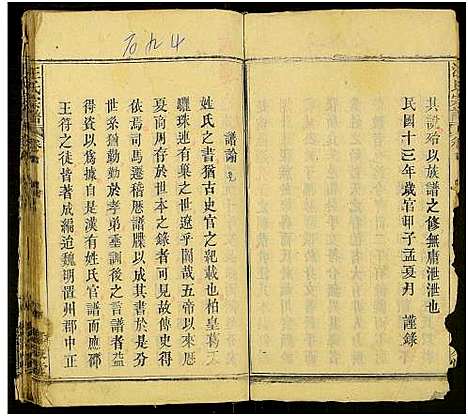 其謗給以族譜之修無庸泄泄也
民國十三年歲官甲子孟夏月 謹錄
汪氏宗譜
石九斗
譜論
姓氏之書猶古史官之紀載也柏皇葛天
驪珠連有巢之世遼乎闊哉五帝以來歷
依焉司馬遷稽歷牒以成其書於是分
而傳者於世本之錄者可見故傳史得
世系猶勤勤於孝弟垂訓後之言譜者益
得資以為據自是漢有姓氏官譜而應邵
王符之徒皆著成編迨魏明置州郡中正
汪氏宗譜